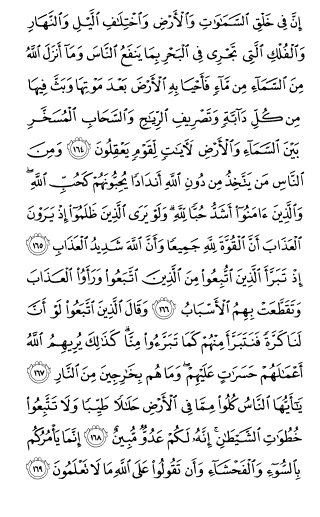 إِنَّ فِى خَلْقِ ٱلسَّمَٰوَٰتِ وَٱلْأَرْضِ وَٱخْتِلَٰفِ ٱلَّيْلِ وَٱلنَّهَارِ
وَٱلْفُلْكِ ٱلَّتِى تَجْرِى فِى ٱلْبَحْرِ بِمَا يَنفَعُ ٱلنَّاسَ وَمَآ أَنزَلَ ٱللَّهُ
مِنَ ٱلسَّمَآءِ مِن مَّآءٍ فَأَحْيَا بِهِ ٱلْأَرْضَ بَعْدَ مَوْتِهَا وَبَثَّ فِيهَا
مِن كُلِّ دَآبَّةٍ وَتَصْرِيفِ ٱلرِّيَٰحِ وَٱلسَّحَابِ ٱلْمُسَخَّرِ
بَيْنَ ٱلسَّمَآءِ وَٱلْأَرْضِ لَءَايَٰتٍ لِّقَوْمٍ يَعْقِلُونَ ١٦٤ وَمِنَ
ٱلنَّاسِ مَن يَتَّخِذُ مِن دُونِ ٱللَّهِ أَندَادًا يُحِبُّونَهُمْ كَحُبِّ ٱللَّهِ ۖ
وَٱلَّذِينَ ءَامَنُوٓا۟ أَشَدُّ حُبًّا لِّلَّهِ ۗ وَلَوْ يَرَى ٱلَّذِينَ ظَلَمُوٓا۟ إِذْ يَرَوْنَ
ٱلْعَذَابَ أَنَّ ٱلْقُوَّةَ لِلَّهِ جَمِيعًا وَأَنَّ ٱللَّهَ شَدِيدُ ٱلْعَذَابِ ١٦٥
إِذْ تَبَرَّأَ ٱلَّذِينَ ٱتُّبِعُوا۟ مِنَ ٱلَّذِينَ ٱتَّبَعُوا۟ وَرَأَوُا۟ ٱلْعَذَابَ
وَتَقَطَّعَتْ بِهِمُ ٱلْأَسْبَابُ ١٦٦ وَقَالَ ٱلَّذِينَ ٱتَّبَعُوا۟ لَوْ أَنَّ
لَنَا كَرَّةً فَنَتَبَرَّأَ مِنْهُمْ كَمَا تَبَرَّءُوا۟ مِنَّا ۗ كَذَٰلِكَ يُرِيهِمُ ٱللَّهُ
أَعْمَٰلَهُمْ حَسَرَٰتٍ عَلَيْهِمْ ۖ وَمَا هُم بِخَٰرِجِينَ مِنَ ٱلنَّارِ ١٦٧
يَٰٓأَيُّهَا ٱلنَّاسُ كُلُوا۟ مِمَّا فِى ٱلْأَرْضِ حَلَٰلًا طَيِّبًا وَلَا تَتَّبِعُوا۟
خُطُوَٰتِ ٱلشَّيْطَٰنِ ۚ إِنَّهُۥ لَكُمْ عَدُوٌّ مُّبِينٌ ١٦٨ إِنَّمَا يَأْمُرُكُم
بِٱلسُّوٓءِ وَٱلْفَحْشَآءِ وَأَن تَقُولُوا۟ عَلَى ٱللَّهِ مَا لَا تَعْلَمُونَ ١٦٩